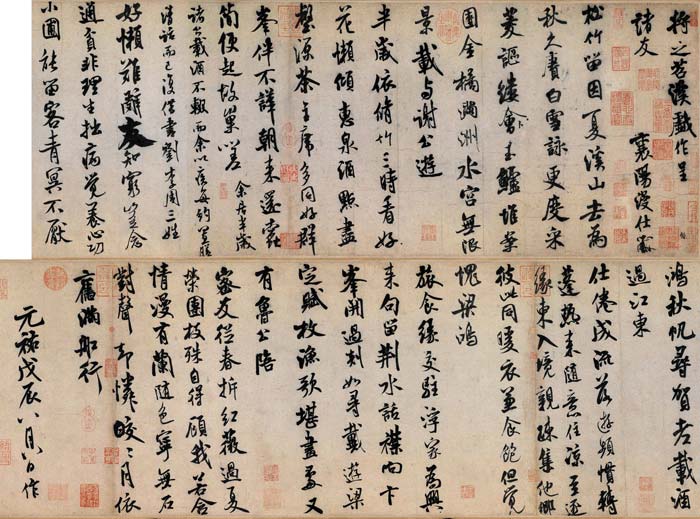 將之苕溪戲作呈
諸友
襄陽漫仕黻
松竹留因夏溪山去為
秋久賡白雪詠更度采
菱謳縷會玉鱸堆案
團金橘滿洲水宮無限
景載與謝公遊
半歲依脩竹三時看好
花懶傾惠泉酒點盡
壑源茶主席多同好群
峯伴不譁朝来還蠹
簡便起故巢嗟 余居半歲
諸公載酒不輟而余以疾每約置膳
清話而已復借書劉李周三姓
好懶難辭友知窮豈念
通貧非理生拙病覺養心功
小圃能留客青冥不厭
鴻秋帆尋賀老載酒
過江東
仕倦成流落遊頻慣轉
蓬熱来隨意住凉至逐
緣東入境親疎集他鄉
彼此同暖衣兼食飽但覺
愧梁鴻
旅食緣交駐浮家為興
来句留荆水話襟向卞
峯開過剡如尋戴遊梁
定賦枚漁歌堪畫處又
有魯公陪
密友從春拆紅薇過夏
榮團枝殊自得顧我若含
情漫有蘭隨色寧無石
對聲却憐皎皎月依
舊滿船行
元祐戊辰八月八日作